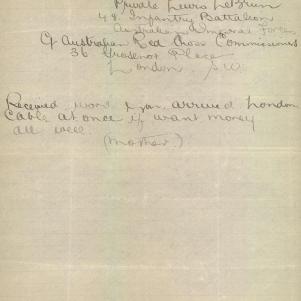 Private Lewis
48 Infantry Battalion
Australian Imperial Forces
C/ Australian Red Cross Commissioner
36 Grosvenor Place
London. S.W.
Received word you arrived London
Cable at once if want money
all well.
(Mother.)